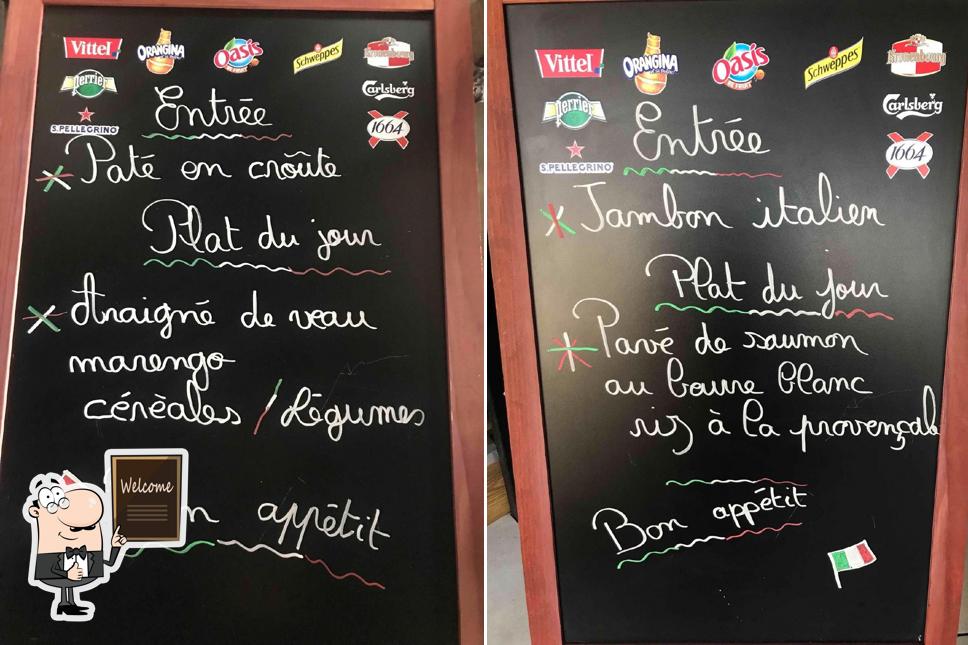 Vittel
ORANGINA
Oasis
Schweppes
Kronenbourg
perrier
Carlsberg
S.PELLEGRINO
1664
Entrée
Paté en croûte
Plat du jour
Araigné de veau
marengo
céréales / légumes
Welcome
n appétit
Vittel
ORANGINA
Oasis
Schweppes
Kronenbourg
perrier
Carlsberg
S.PELLEGRINO
1664
Entrée
Jambon italien
Plat du jour
Pavé de saumon
au beurre blanc
riz à la provençale
Bon appétit